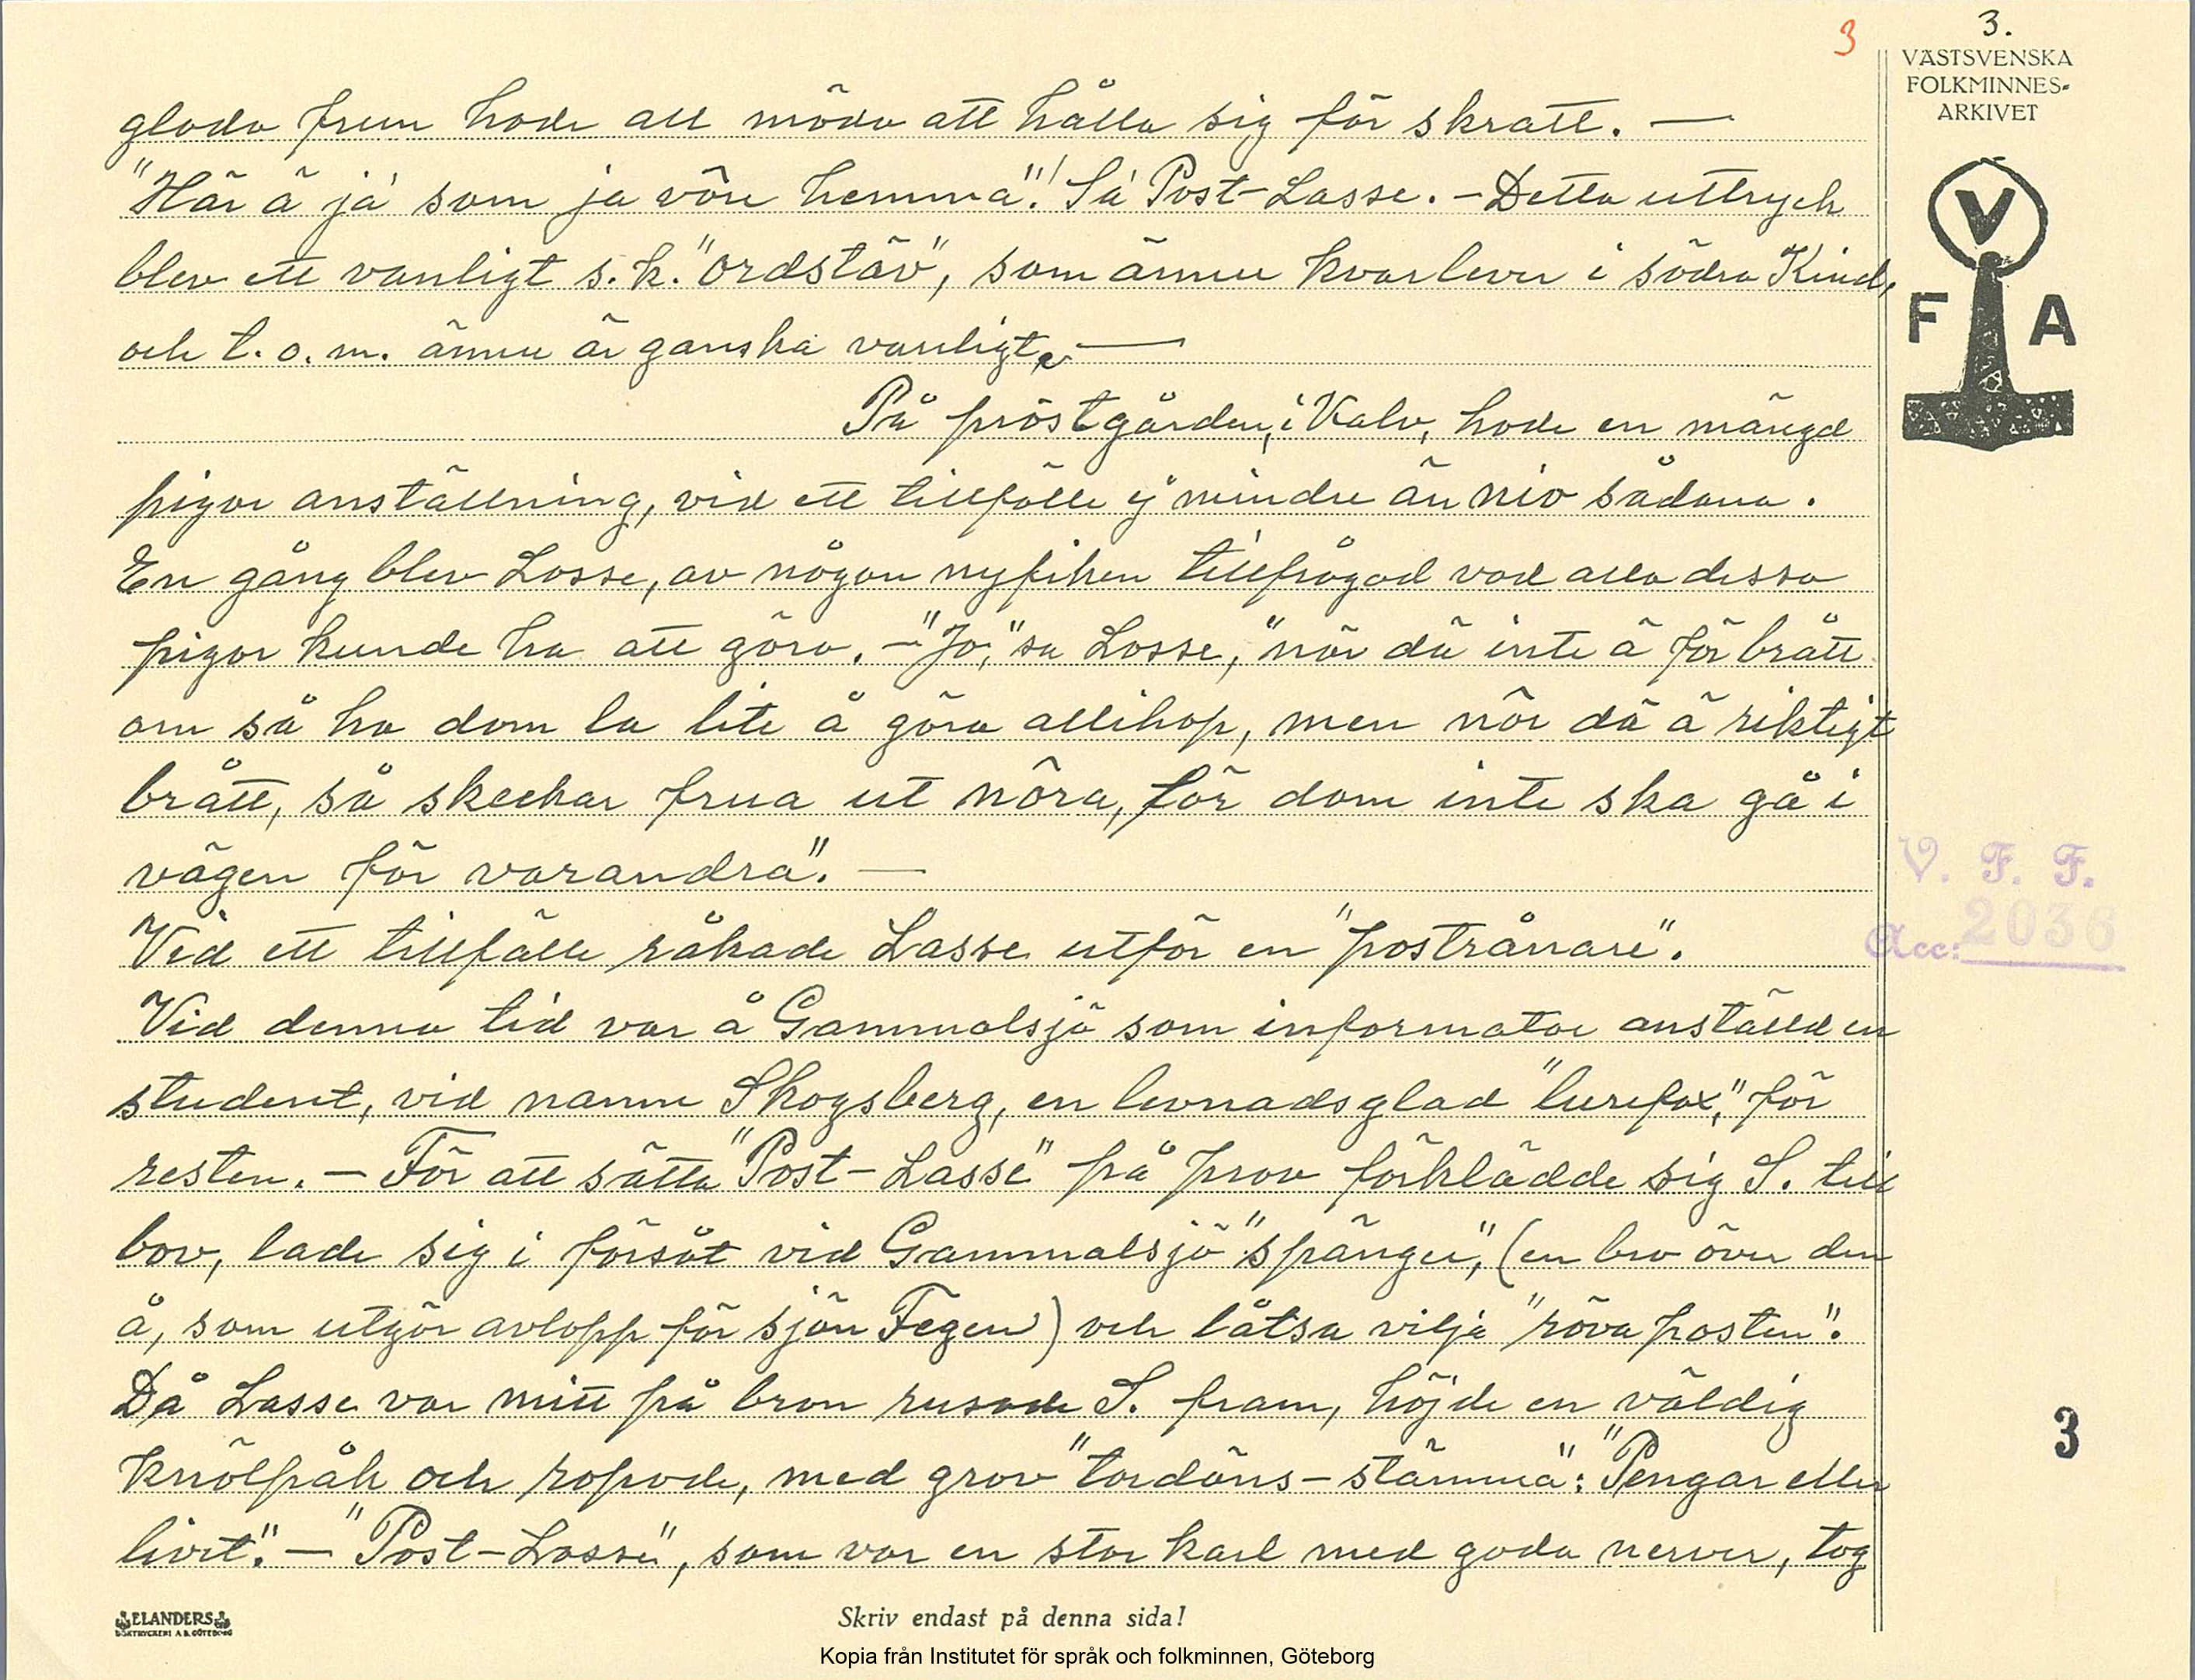 3
3.
VÄSTSVENSKA
FOLKMINNES-
ARKIVET
V
F A
glada frun hade all möda att hålla sig för skratt. —
"Här ä ja' som ja vôre hemma"! Sa' Post-Lasse. - Detta uttryck
blev ett vanligt s.k. "ordstäv", som ännu kvarlever i södra Kind,
och t.o.m. ännu är ganska vanligt. —
På pröstgården, i Kalv, hade en mängd
pigor anställning, vid ett tillfälle ej mindre än nio sådana.
En gång blev Lasse, av någon nyfiken tillfrågad vad alla dessa
pigor kunde ha att göra. - "Jo," sa Lasse, "när dä inte ä för brått
om så ha dom la lite å göra allihop, men nôr dä ä riktigt
brått, så skeckar frua ut nôra, för dom inte ska gå i
vägen för varandra". —
Vid ett tillfälle råkade Lasse utför en "postrånare".
Vid denna tid var å Gammalsjö som informator anställd en
student, vid namn Skogsberg, en levnadsglad "lurefax," för
resten. - För att sätta "Post-Lasse" på prov förklädde sig S. till
bov, lade sig i försåt vid Gammalsjö "spänger", (en bro över den
å, som utgör avlopp för sjön Fegen) och låtsa vilja "röva posten".
Då Lasse var mitt på bron rusade S. fram, höjde en väldig
knölpåk och ropade, med grov "tordöns-stämma": "Pengar eller
livet". - "Post-Lasse", som var en stor karl med goda nerver, tog
V. F. F.
Acc: 2036
3
ELANDERS
BOKTRYCKERI A.B. GÖTEBORG
Skriv endast på denna sida!
Kopia från Institutet för språk och folkminnen, Göteborg